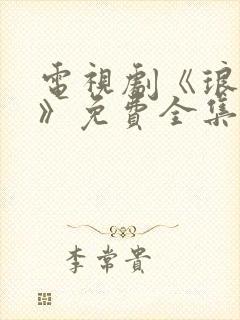 電視劇《琅
》免費全集
李常貴